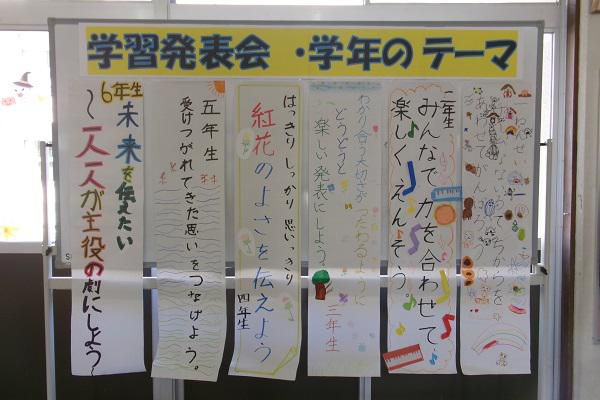 学習発表会・学年のテーマ
二年生
みんなで力を合わせて
楽しくえんそう。
わかり合う大切さがつたわるように
どうどうと
楽しい発表にしよう。
三年生
はっきりしっかり思いっきり
紅花のよさを伝えよう
四年生
五年生
受けつがれてきた思いをつなげよう。
6年生
未来を伝えたい
～一人一人が主役の劇にしよう～